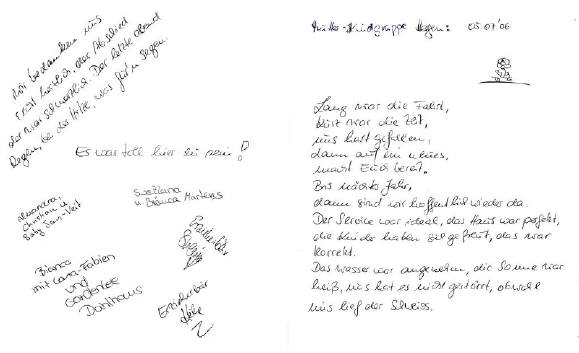 Wir bedanken uns
recht herzlich, der Abschied
der war schmerzlich. Der letzte Abend
Regen, bei der Hitze, was für'n Segen.
Es war toll hier zu sein!
Svetlana
u. Bianca Martens
Alexandra,
Christian u.
Bianca
mit Lana-Fabien
und
Dahlhaus
Mutter-Kindgruppe Hagen: 05.07.'06
Lang war die Fahrt,
kurz war die Zeit,
uns hat's gefallen,
dann auf ein neues,
macht Euch bereit.
Bis nächstes Jahr,
dann sind wir hoffentlich wieder da.
Der Service war ideal, das Haus war perfekt,
die Kinder haben sich gefreut, das war
korrekt.
Das Wasser war angenehm, die Sonne war
heiß, uns hat es nicht gestört, obwohl
uns lief der Schweiss.